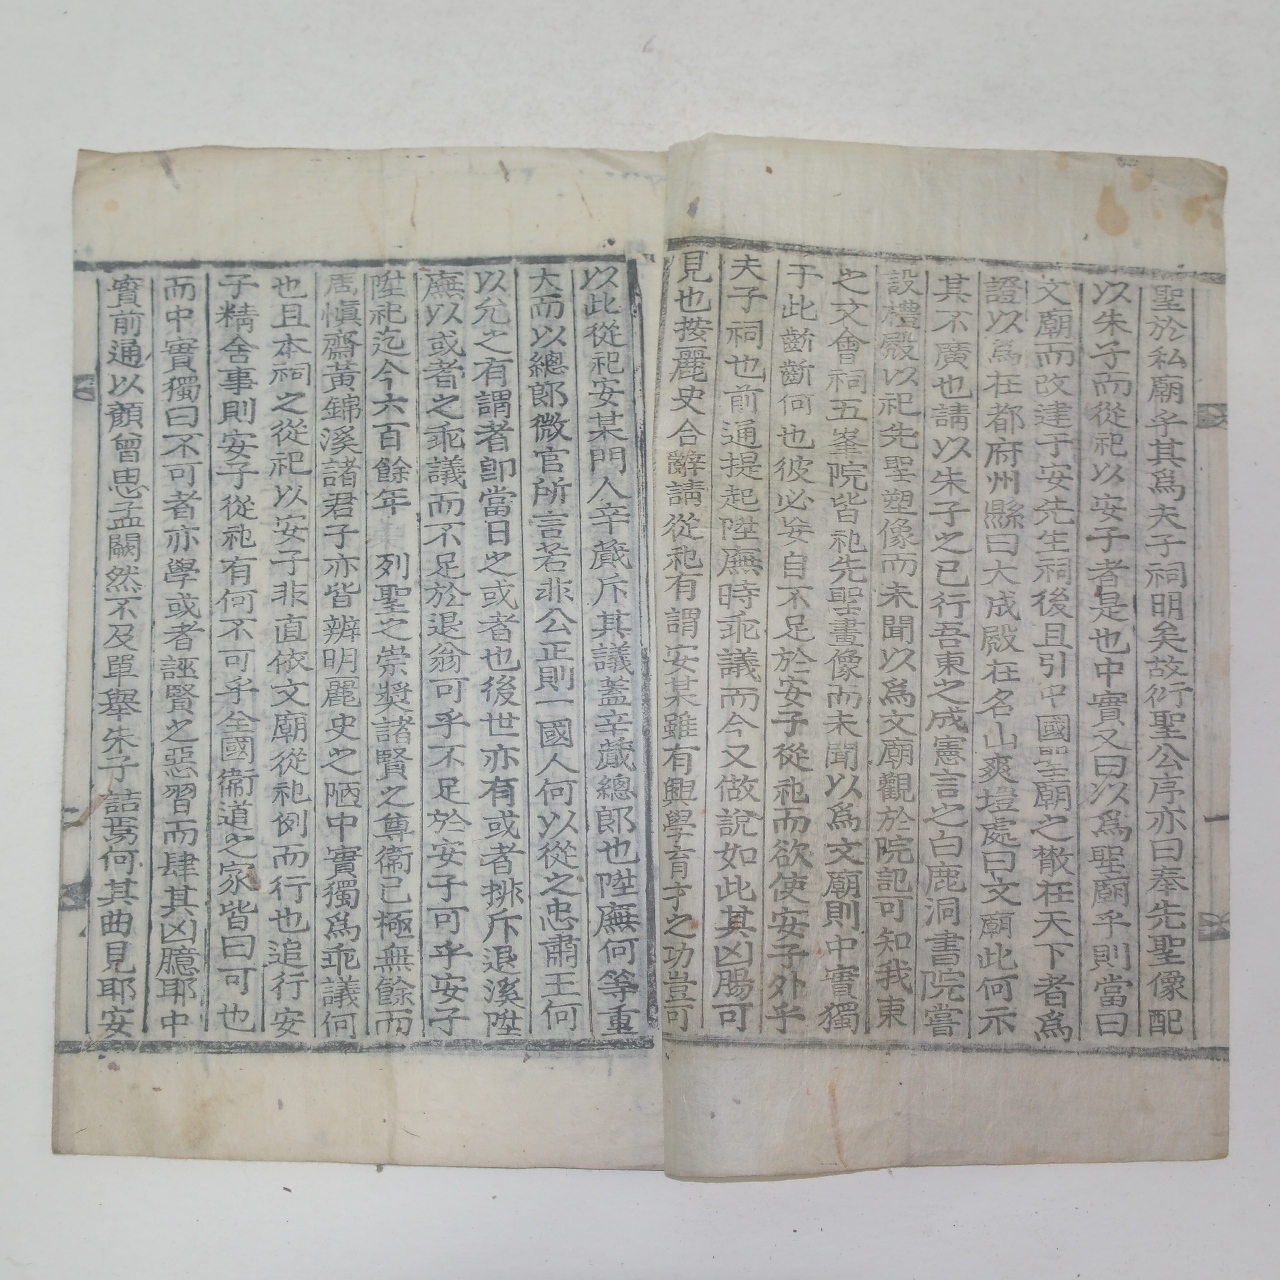 聖於私廟乎其爲夫子祠明矣故衍聖公序亦曰奉先聖像配
以朱子而從祀以安子者是也中實又曰以爲聖廟乎則當曰
文廟而改建于安先生祠後且引中國聖廟之散在天下者爲
證以爲在都府州縣曰大成殿在名山爽塏處曰文廟此何示
其不廣也請以朱子之已行吾東之成憲言之白鹿洞書院嘗
設禮殿以祀先聖塑像而未聞以爲文廟觀於院記可知我東
之文會祠五峯院皆祀先聖畫像而未聞以爲文廟則中實獨
于此齗齗何也彼必妄自不足於安子從祀而欲使安子外乎
夫子祠也前通提起陞廡時乖議而今又做說如此其凶腸可
見也按麗史合辭請從祀有謂安某雖有興學育才之功豈可
以此從祀安某門人辛蕆斥其議蓋辛蕆總郎也陞廡何等重
大而以總郎微官所言若非公正則一國人何以從之忠肅王何
以允之有謂者卽當日之或者也後世亦有或者排斥退溪陞
廡以或者之乖議而不足於退翁可乎不足於安子可乎安子
陞祀迄今六百餘年 列聖之崇獎諸賢之尊衞已極無餘而
周愼齋黃錦溪諸君子亦皆辨明麗史之陋中實獨爲乖議何
也且本祠之從祀以安子非直依文廟從祀例而行也追行安
子精舍事則安子從祀有何不可乎全國衞道之家皆曰可也
而中實獨曰不可者亦學或者誣賢之惡習而肆其凶臆耶中
實前通以顏曾思孟闕然不及單舉朱子詰焉何其曲見耶安